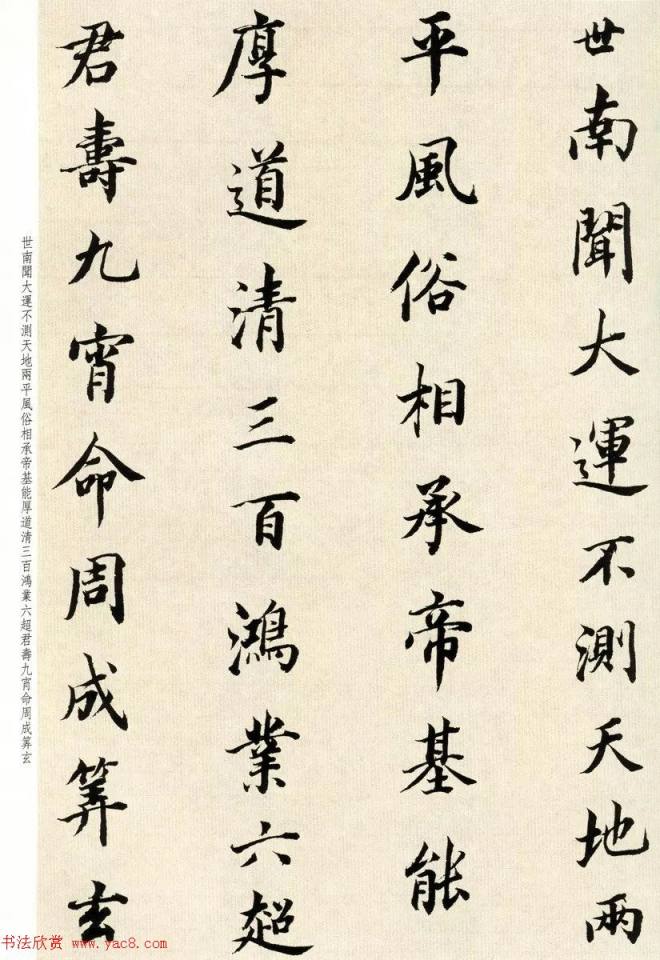 世南聞大運不測天地兩
平風俗相承帝基能
厚道清三百鴻業六超
君壽九宵命周成筭玄
世南聞大運不測天地兩平風俗相承帝基能厚道清三百鴻業六超君壽九宵命周成筭玄
书法欣赏 www.yac8.com